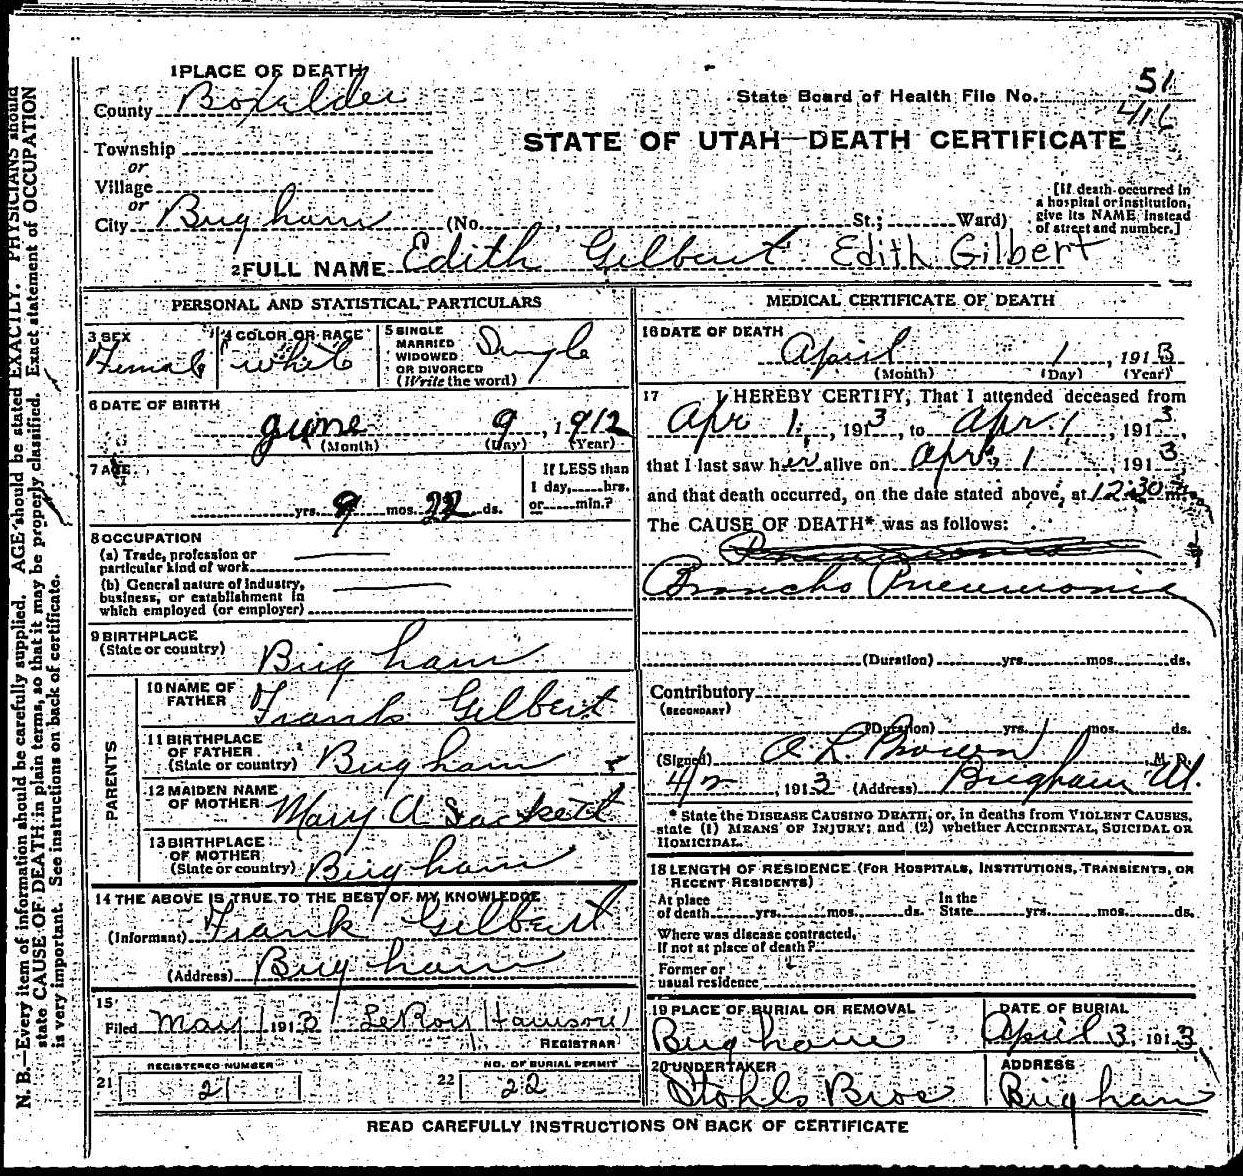 1 PLACE OF DEATH
County Boxelder
Township
or
Village
or
City Brigham (No. , St.; Ward)
State Board of Health File No. 51
STATE OF UTAH—DEATH CERTIFICATE
[If death occurred in
a hospital or institution,
give its NAME instead
of street and number.]
2 FULL NAME Edith Gilbert Edith Gilbert
PERSONAL AND STATISTICAL PARTICULARS
3 SEX
Female
4 COLOR OR RACE
white
5 SINGLE
MARRIED
WIDOWED
OR DIVORCED
(Write the word)
Single
6 DATE OF BIRTH
June 9, 1912
(Month) (Day) (Year)
7 AGE
yrs. 9 mos. 22 ds.
If LESS than
1 day, hrs.
or min.?
8 OCCUPATION
(a) Trade, profession or
particular kind of work
(b) General nature of industry,
business, or establishment in
which employed (or employer)
9 BIRTHPLACE
(State or country)
Brigham
PARENTS
10 NAME OF
FATHER
Frank Gilbert
11 BIRTHPLACE
OF FATHER
(State or country)
Brigham
12 MAIDEN NAME
OF MOTHER
Mary A Sackett
13 BIRTHPLACE
OF MOTHER
(State or country)
Brigham
14 THE ABOVE IS TRUE TO THE BEST OF MY KNOWLEDGE
(Informant) Frank Gilbert
(Address) Brigham
15
Filed May 1 1913 LeRoy
REGISTRAR
REGISTERED NUMBER
21 21
NO. OF BURIAL PERMIT
22 22
MEDICAL CERTIFICATE OF DEATH
16 DATE OF DEATH
April 1, 1913
(Month) (Day) (Year)
17 I HEREBY CERTIFY, That I attended deceased from
Apr 1, 1913, to Apr. 1, 1913,
that I last saw her alive on Apr. 1, 1913,
and that death occurred, on the date stated above, at 12:30 m.
The CAUSE OF DEATH* was as follows:
Broncho Pneumonia
(Duration) yrs. mos. ds.
Contributory
(SECONDARY)
(Duration) yrs. mos. ds.
(Signed) A L Brown, M. D.
4/2, 1913 (Address) Brigham Ut.
* State the DISEASE CAUSING DEATH, or, in deaths from VIOLENT CAUSES,
state (1) MEANS OF INJURY; and (2) whether ACCIDENTAL, SUICIDAL OR
HOMICIDAL.
18 LENGTH OF RESIDENCE (FOR HOSPITALS, INSTITUTIONS, TRANSIENTS, OR
RECENT RESIDENTS)
At place
of death yrs. mos. ds.
In the
State yrs. mos. ds.
Where was disease contracted,
If not at place of death?
Former or
usual residence
19 PLACE OF BURIAL OR REMOVAL
Brigham
DATE OF BURIAL
April 3, 1913
20 UNDERTAKER
Stohls Bros
ADDRESS
Brigham
READ CAREFULLY INSTRUCTIONS ON BACK OF CERTIFICATE
N. B.—Every item of information should be carefully supplied. AGE should be stated EXACTLY. PHYSICIANS should
state CAUSE OF DEATH in plain terms, so that it may be properly classified. Exact statement of OCCUPATION
is very important. See instructions on back of certificate.